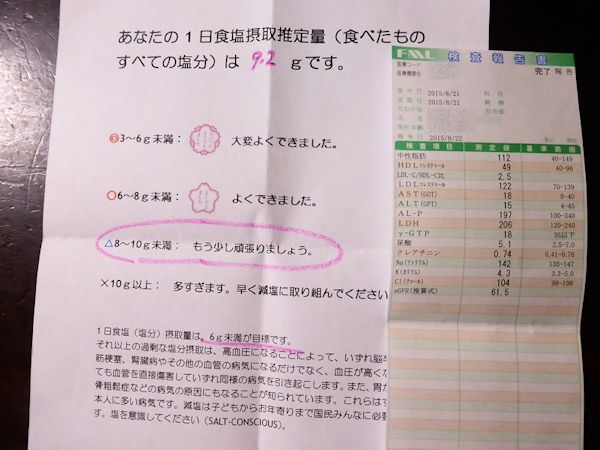 あなたの1日食塩摂取推定量（食べたもの
すべての塩分）は 9.2 gです。
◎3～6g未満： 大変よくできました。
○6～8g未満： よくできました。
△8～10g未満： もう少し頑張りましょう。
×10g以上： 多すぎます。早く減塩に取り組んでください
1日食塩（塩分）摂取量は、6g未満が目標です。
それ以上の過剰な塩分摂取は、高血圧になることによって、いずれ脳卒
筋梗塞、腎臓病やその他の血管の病気になるだけでなく、血圧が高くな
ても血管を直接傷害していずれ同様の病気を引き起こします。また、胃が
骨粗鬆症などの病気の原因にもなることが知られています。これらはす
本人に多い病気です。減塩は子どもからお年寄りまで国民みんなに必要
す。塩を意識してください（SALT-CONSCIOUS）。
FML 検査報告書
医療コード
医療機関名
完了報告
受付日 2015/8/21 科目
採取日 2015/8/21 病棟
カルテNo. 担当医
氏名
性別年齢
報告日 2015/8/22
検査項目 測定値 基準範囲
中性脂肪 112 40-149
HDLコレステロール 49 40-96
LDL-C/HDL-C比 2.5
LDLコレステロール 122 70-139
AST(GOT) 18 8-40
ALT(GPT) 15 4-45
AL-P 197 100-340
LDH 206 120-240
γ-GTP 18 35以下
尿酸 5.1 2.5-7.0
クレアチニン 0.74 0.41-0.76
Na(ナトリウム) 142 135-147
K(カリウム) 4.3 3.3-5.0
Cl(クロール) 104 98-108
eGFR(推算式) 61.5